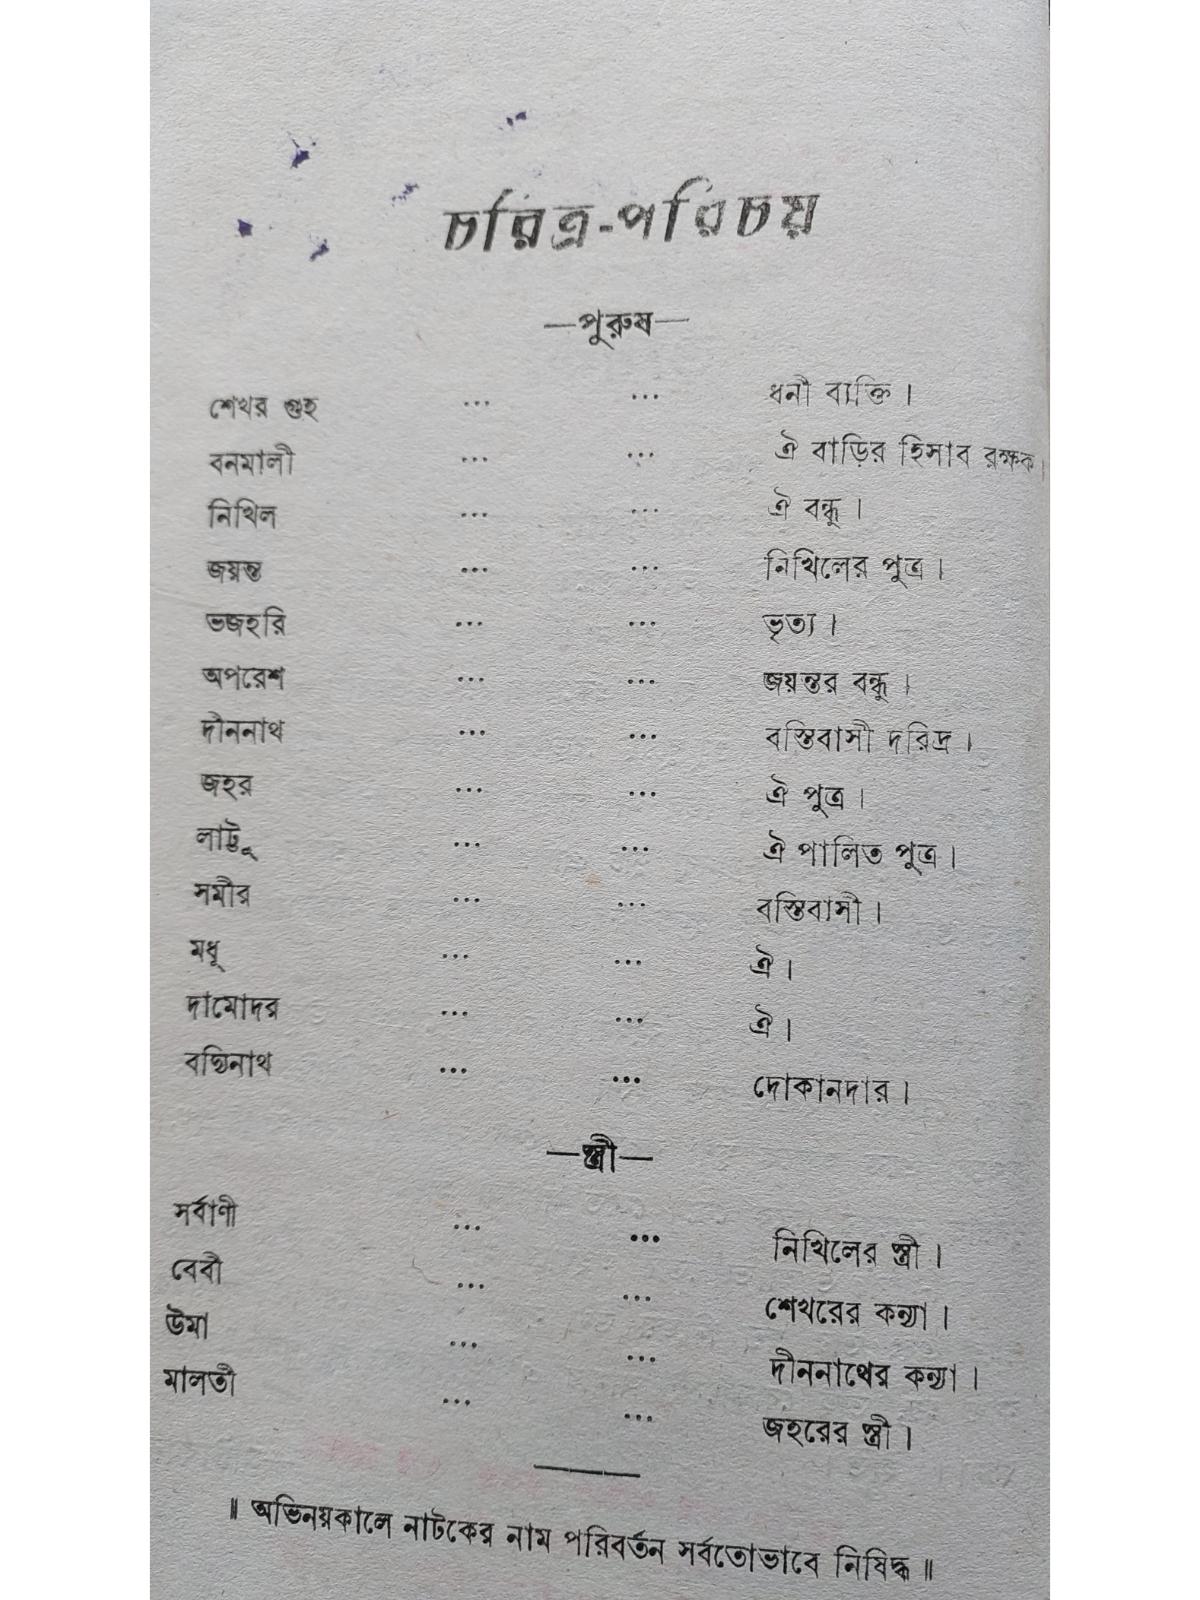 চরিত্র-পরিচয়
—পুরুষ—
শেখর গুহ ... ... ধনী ব্যক্তি ।
বনমালী ... ... ঐ বাড়ির হিসাব রক্ষক ।
নিখিল ... ... ঐ বন্ধু ।
জয়ন্ত ... ... নিখিলের পুত্র ।
ভজহরি ... ... ভৃত্য ।
অপরেশ ... ... জয়ন্তর বন্ধু ।
দীননাথ ... ... বস্তিবাসী দরিদ্র ।
জহর ... ... ঐ পুত্র ।
লাট্টু ... ... ঐ পালিত পুত্র ।
সমীর ... ... বস্তিবাসী ।
মধু ... ... ঐ ।
দামোদর ... ... ঐ ।
বদ্যিনাথ ... ... দোকানদার ।
—স্ত্রী—
সর্বাণী ... ... নিখিলের স্ত্রী ।
বেবী ... ... শেখরের কন্যা ।
উমা ... ... দীননাথের কন্যা ।
মালতী ... ... জহরের স্ত্রী ।
॥ অভিনয়কালে নাটকের নাম পরিবর্তন সর্বতোভাবে নিষিদ্ধ ॥